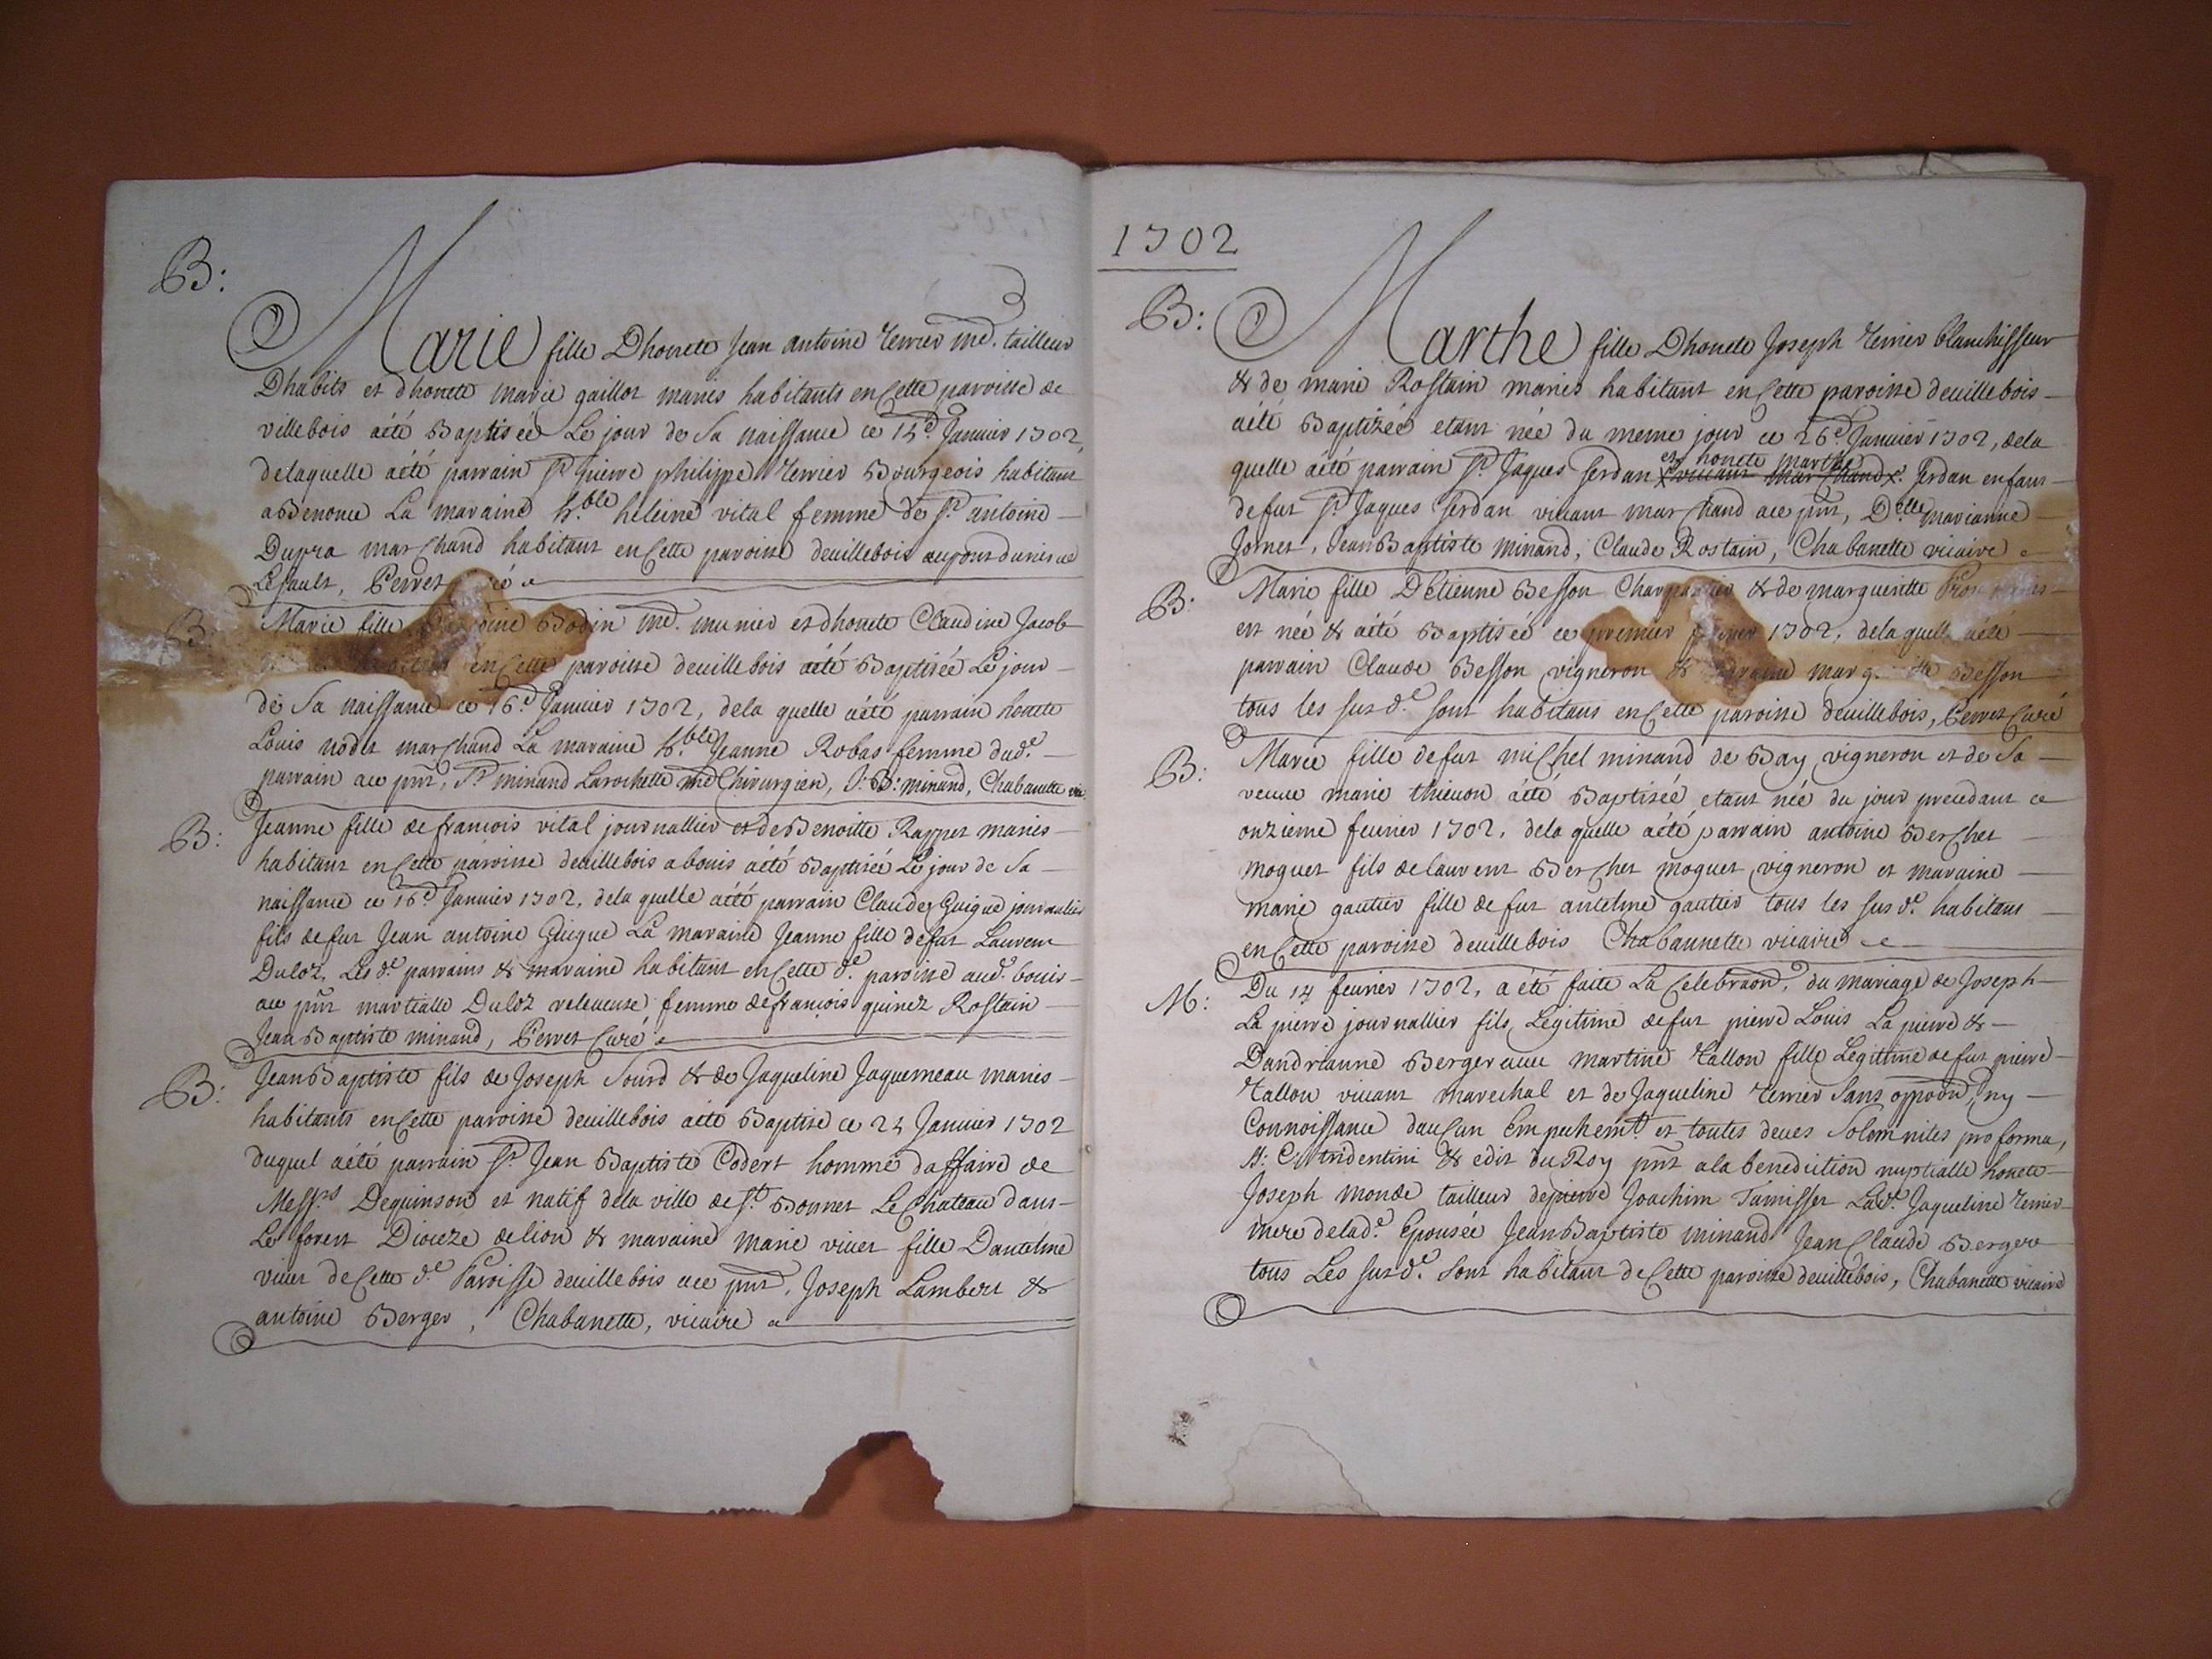 B:
Marie fille Dhonete Jean antoine terrier md. tailleur
Dhabits et dhonete marie gaillot maries habitants en Cette paroisse de
villebois aété Baptisée Le jour de Sa naissance ce 15d Janvier 1702,
delaquelle aété parrain Sr pierre philippe terrier Bourgeois habitant
a Benonce La maraine h.ble heleine vital femme de Sr antoine
Dupra marchand habitant en Cette paroisse deuillebois
Lesault, Perret
B:
Marie fille Bodin md. munier et dhonete Claudine Jacob
en Cette paroisse deuillebois aété Baptisée Le jour
de Sa naissance ce 16d Janvier 1702, dela quelle aété parrain honete
Louis nodet marchand La maraine h.ble Jeanne Robas femme dud.e
parrain ace pnt, Sr minand Larochette me Chirurgien, J: B: minand, Chabanette vic
B:
Jeanne fille de francois vital journallier et de Benoitte Rappet maries
habitant en Cette paroisse deuillebois abouis aété Baptisée Le jour de Sa
naissance ce 16d Janvier 1702, dela quelle aété parrain Claude Guigue journalier
fils defut Jean antoine Guigue La maraine Jeanne fille defut Laurent
Duloz. Les d.e parrains & maraine habitant en Cette d.e paroisse aud. bouis
ace pnt martialle Duloz releveuse femme defrancois quinez Rostain
Jean Baptiste minand, Perret Curé
B:
Jean Baptiste fils de Joseph Sourd & de Jaqueline Jaquemeau maries
habitants en Cette paroisse deuillebois aété Baptisé ce 24 Janvier 1702
duquel aété parrain Sr Jean Baptiste Codert homme daffaire de
Messrs Deguinson et natif dela ville de St Bonnet Le Chateau dans
Le forest Dioceze delion & maraine marie vivet fille Dantelme
vivet de Cette d.e Paroisse deuillebois ace pnt, Joseph Lambert &
antoine Berger, Chabanette, vicaire
1702
B:
Marthe fille Dhonete Joseph terrier blanchisseur
& de marie Rostain maries habitant en Cette paroisse deuillebois
aété Baptizée etant née du meme jour ce 26d Janvier 1702, dela
et honete marthe
quelle aété parrain Sr Jaques Jerdan vivant marchand Jerdan enfans
defut Sr Jaques Jerdan vivant marchand ace pnt, Delle marianne
Jornet, Jean Baptiste minand, Claude Rostain, Chabanette vicaire
B:
Marie fille D'Etienne Besson Charpentier & de margueritte
est née & aété Baptisée ce premier 1702, delaquelle aété
parrain Claude Besson vigneron & Besson
tous les sus d.e sont habitans en Cette paroisse deuillebois, Perret Curé
B:
Marie fille defut michel minand de Bay vigneron et de Sa
veuve marie thienon aété Baptisée etant née du jour precedant ce
onzieme fevrier 1702. dela quelle aété parrain antoine Berchet
moguet fils de laurent Berchet moguet vigneron et maraine
marie gautier fille de fut antelme gautier tous les sus d.e habitans
en Cette paroisse deuillebois Chabannette vicaire
M:
Du 14 fevrier 1702, a été faite La Celebraon. du mariage de Joseph
La pierre journallier fils Legitime defut pierre Louis La pierre &
Dandrianne Berger avec martine tallon fille Legitime defut pierre
tallon vivant marechal et de Jaqueline terrier Sans oppoon, ny
Connoissance daucun Empechemt. et toutes deues Solemnites pro forma,
S: C: tridentini & edit du Roy pnt ala benediction nuptialle honete
Joseph monde tailleur depierre Joachim Tamisset Lad.e Jaqueline terrier
mere delad.e Epousée Jean Baptiste minand Jean Claude Berger
tous Les sus d.e sont habitant de Cette paroisse deuillebois, Chabanette vicaire